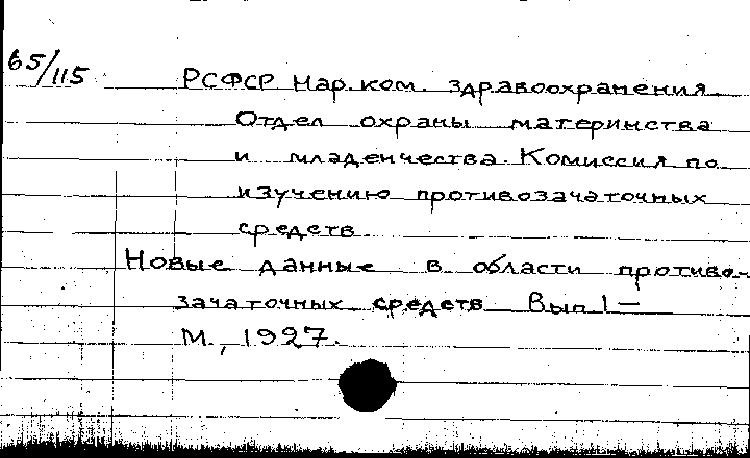 65/115
РСФСР Нар.ком. здравоохранения
Отдел охраны материнства
и младенчества. Комиссия по
изучению противозачаточных
средств.
Новые данные в области противо-
зачаточных средств Вып 1 —
М., 1927.